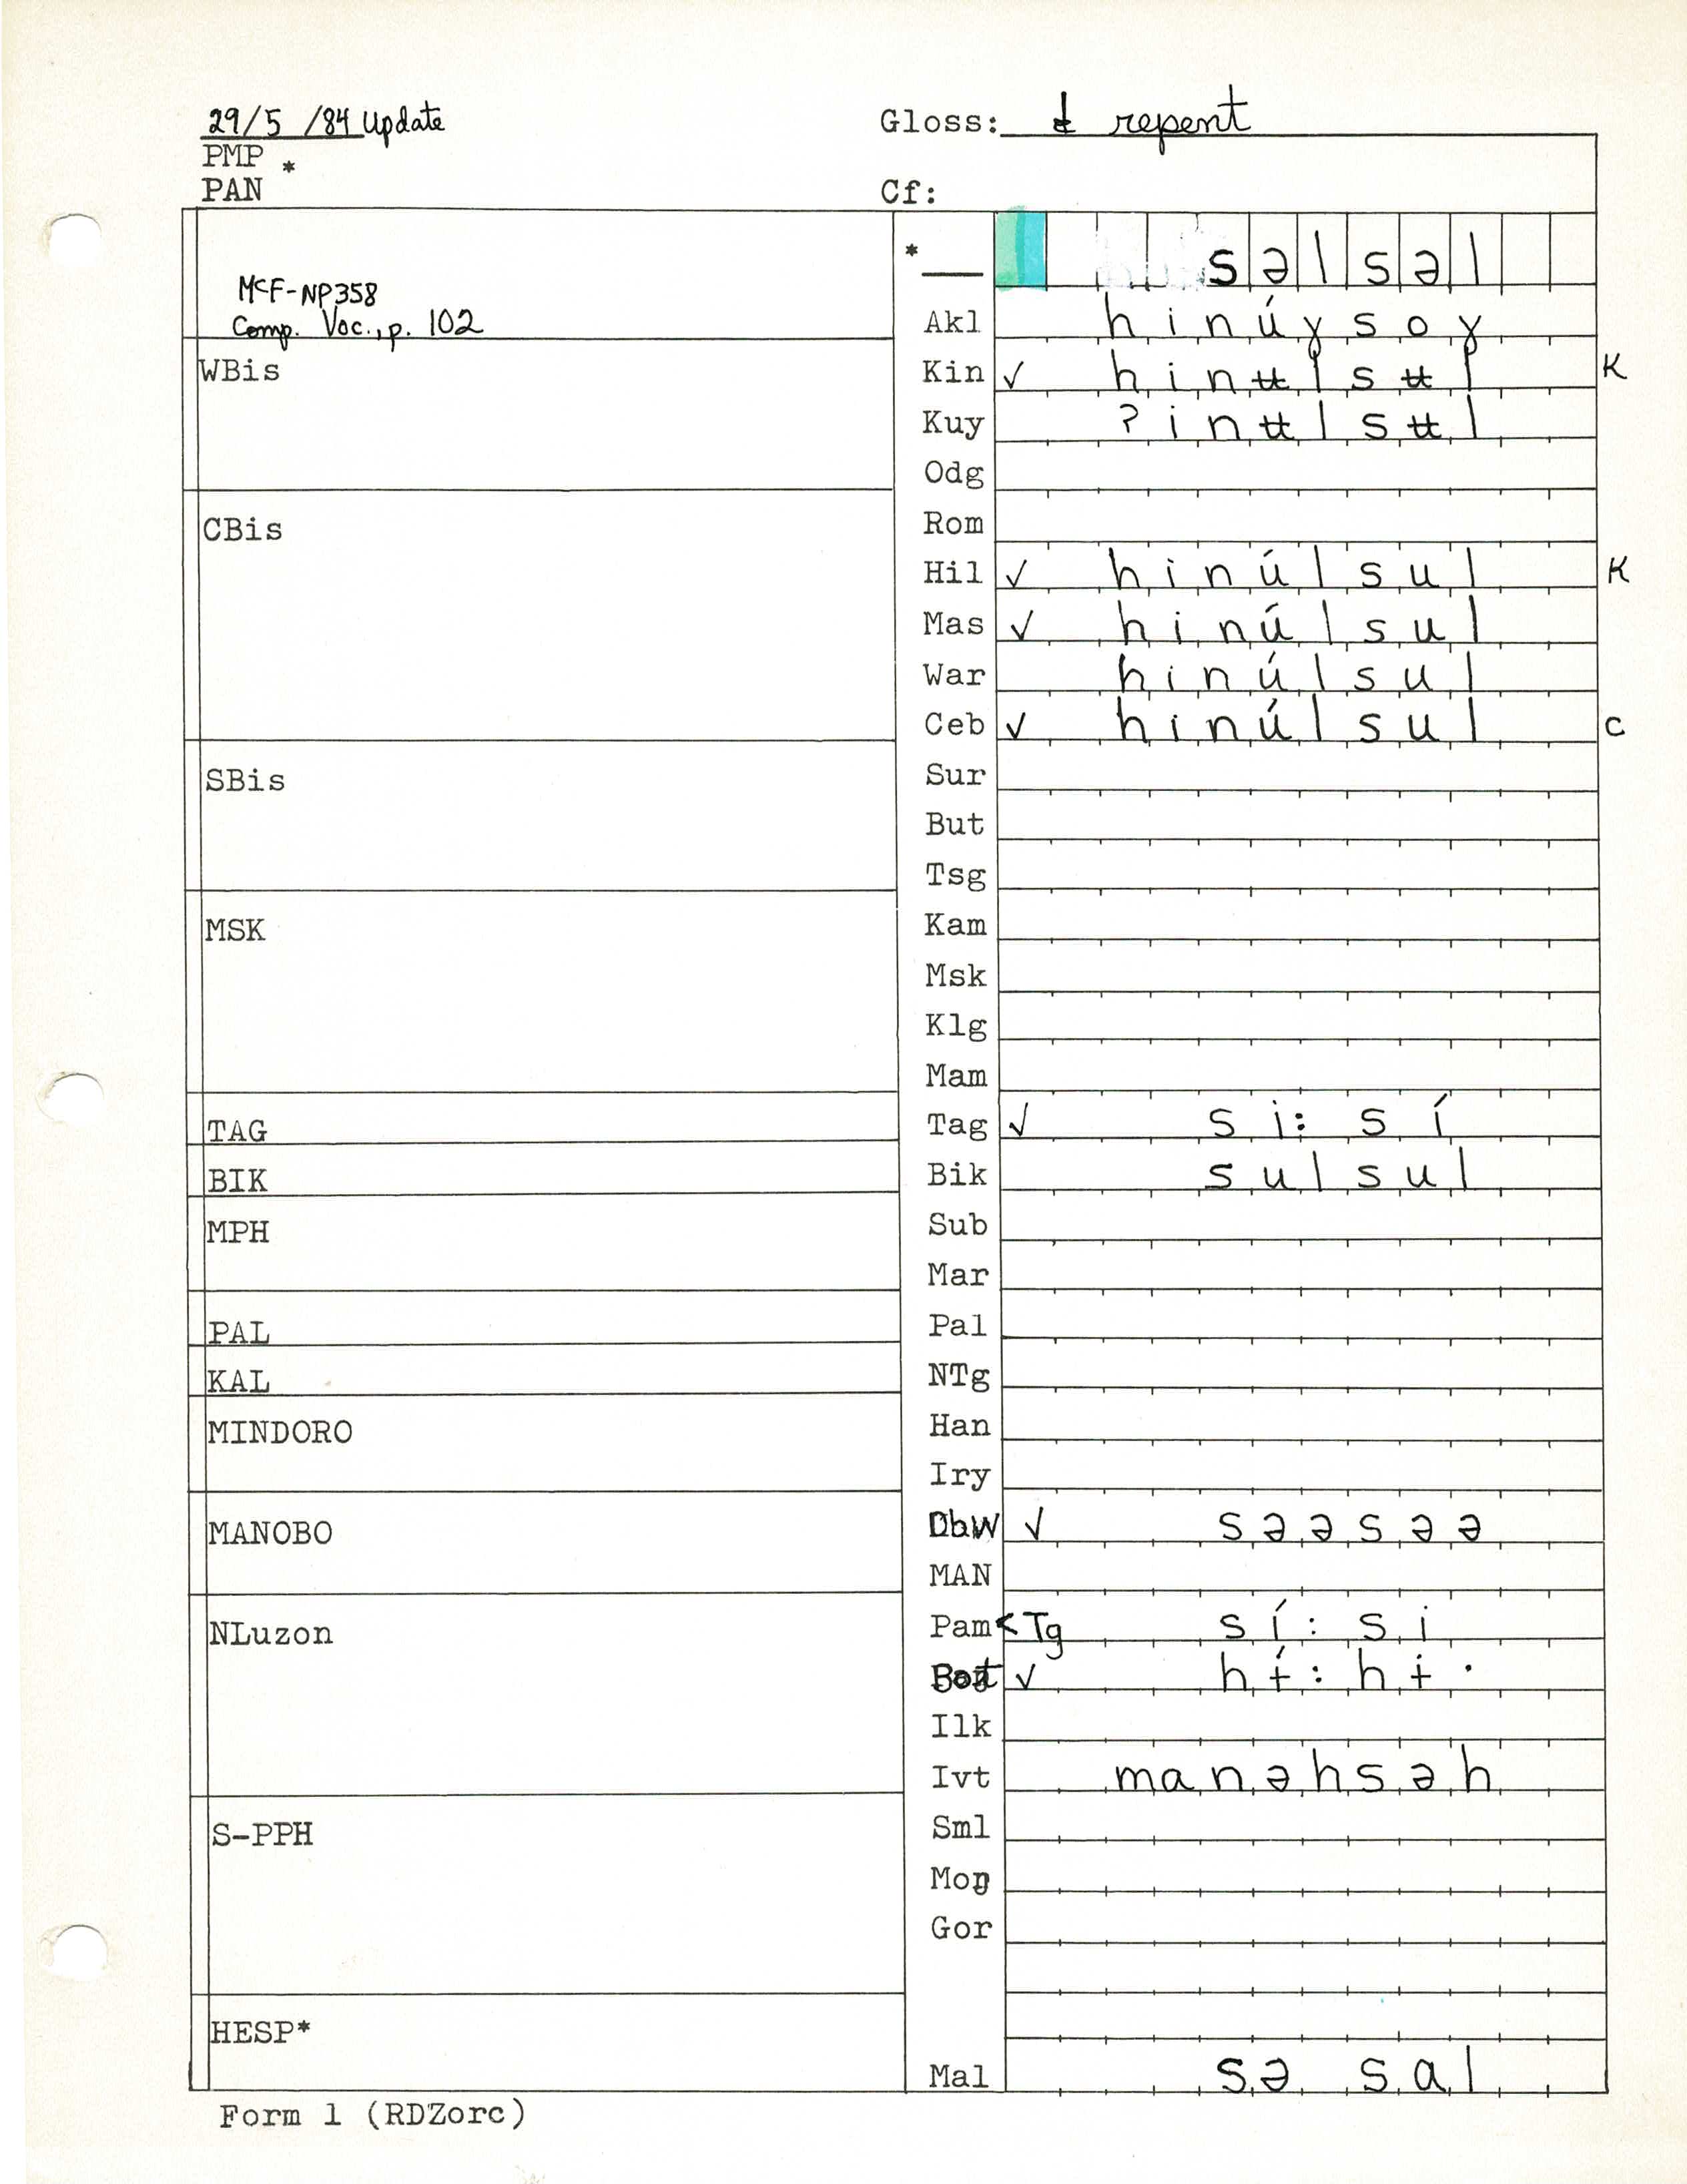 29/5 /84 Update
Gloss: repent
PMP *
PAN
Cf:
* səlsəl
McF-NP358
Comp. Voc., p. 102
Akl hinúɣsoɣ
WBis
Kin ✓ hinʉlsʉl K
Kuy ʔinʉlsʉl
Odg
CBis
Rom
Hil ✓ hinúlsul K
Mas ✓ hinúlsul
War hinúlsul
Ceb ✓ hinúlsul C
SBis
Sur
But
Tsg
MSK
Kam
Msk
Klg
Mam
TAG
Tag ✓ si:sí
BIK
Bik sulsul
MPH
Sub
Mar
PAL
Pal
KAL
NTg
MINDORO
Han
Iry
MANOBO
DbW ✓ səəsəə
MAN
NLuzon
Pam < Tg sí:si
✓ hɨ́:hɨ·
Ilk
Ivt manəhsəh
S-PPH
Sml
Moŋ
Gor
HESP*
Mal sə sal
Form 1 (RDZorc)